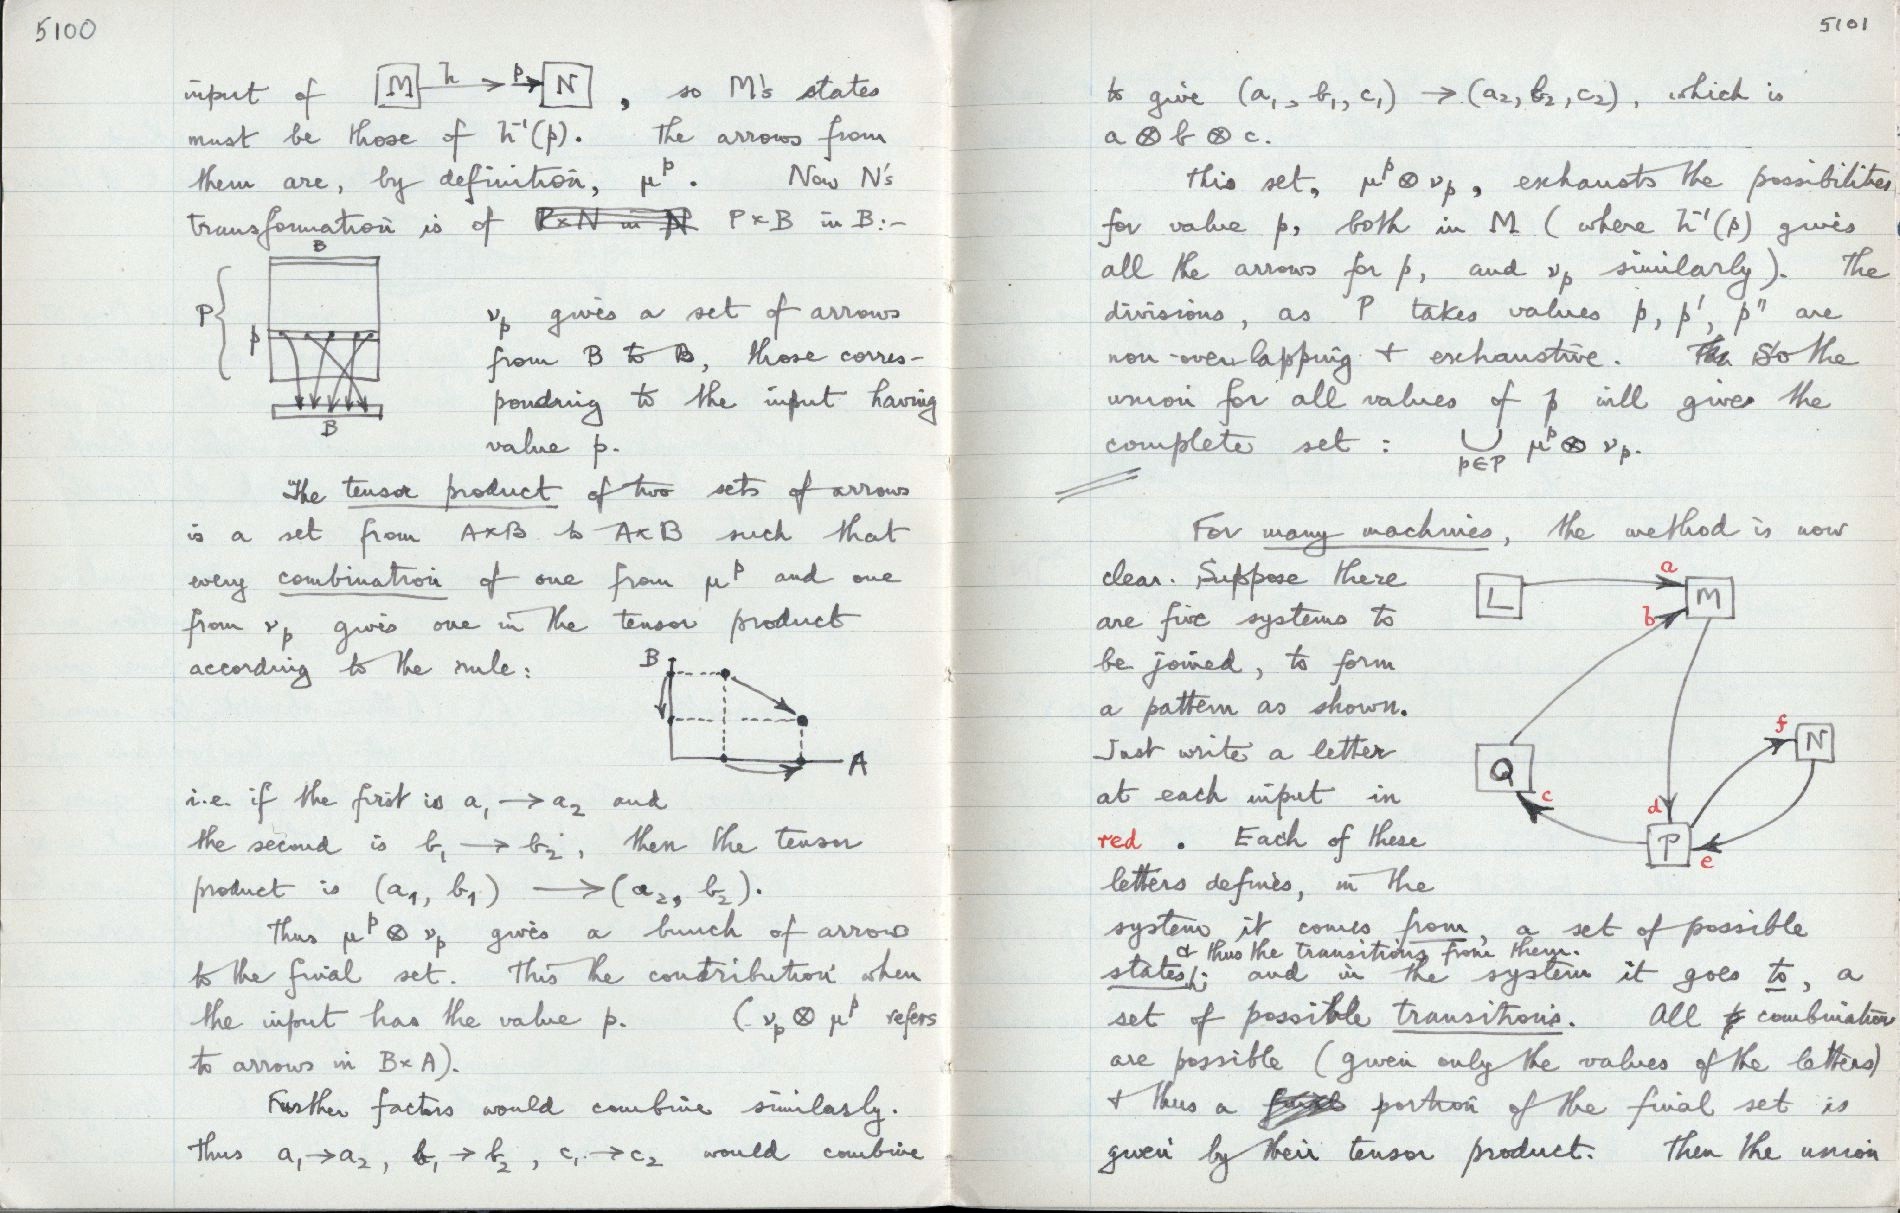 5100
input of M h → p → N , so M's states
must be those of h⁻¹(p). The arrows from
them are, by definition, μᵖ. Now N's
transformation is of P×N in N P×B in B:-
B
P {
p
B
νₚ gives a set of arrows
from B to B, those corres-
ponding to the input having
value p.
The tensor product of two sets of arrows
is a set from A×B to A×B such that
every combination of one from μᵖ and one
from νₚ gives one in the tensor product
according to the rule:
B
A
i.e. if the first is a₁ → a₂ and
the second is b₁ → b₂, then the tensor
product is (a₁, b₁) → (a₂, b₂).
Thus μᵖ ⊗ νₚ gives a bunch of arrows
to the final set. This the contribution when
the input has the value p. (νₚ ⊗ μᵖ refers
to arrows in B×A).
Further factors would combine similarly.
Thus a₁→a₂, b₁→b₂, c₁→c₂ would combine
5101
to give (a₁, b₁, c₁) → (a₂, b₂, c₂), which is
a ⊗ b ⊗ c.
This set, μᵖ ⊗ νₚ, exhausts the possibilities
for value p, both in M (where h⁻¹(p) gives
all the arrows for p, and νₚ similarly). The
divisions, as P takes values p, p', p'' are
non-overlapping + exhaustive. So the
union for all values of p will gives the
complete set : ⋃ μᵖ ⊗ νₚ.
p∈P
For many machines, the method is now
clear. Suppose there
are five systems to
be joined, to form
a pattern as shown.
Just write a letter
at each input in
red. Each of these
letters defines, in the
L
a
M
b
Q
c
d
P
e
f
N
system it comes from, a set of possible
& thus the transitions from them.
states; and in the system it goes to, a
set of possible transitions. All combination
are possible (given only the values of the letters)
+ thus a portion of the final set is
given by their tensor product. Then the union